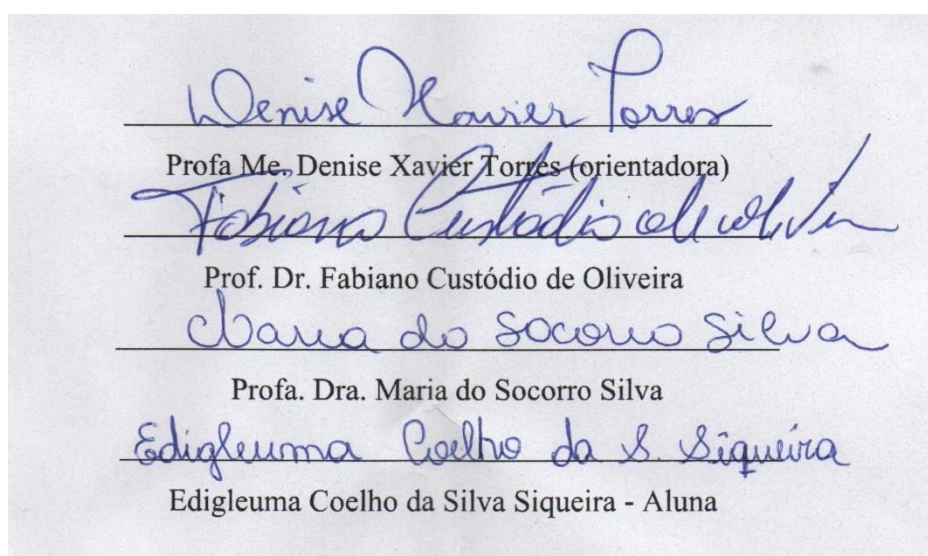 Denise Xavier Torres
Profa Me. Denise Xavier Torres (orientadora)
Fabiano Custódio de Oliveira
Prof. Dr. Fabiano Custódio de Oliveira
Maria do Socorro Silva
Profa. Dra. Maria do Socorro Silva
Edigleuma Coelho da S. Siqueira
Edigleuma Coelho da Silva Siqueira - Aluna